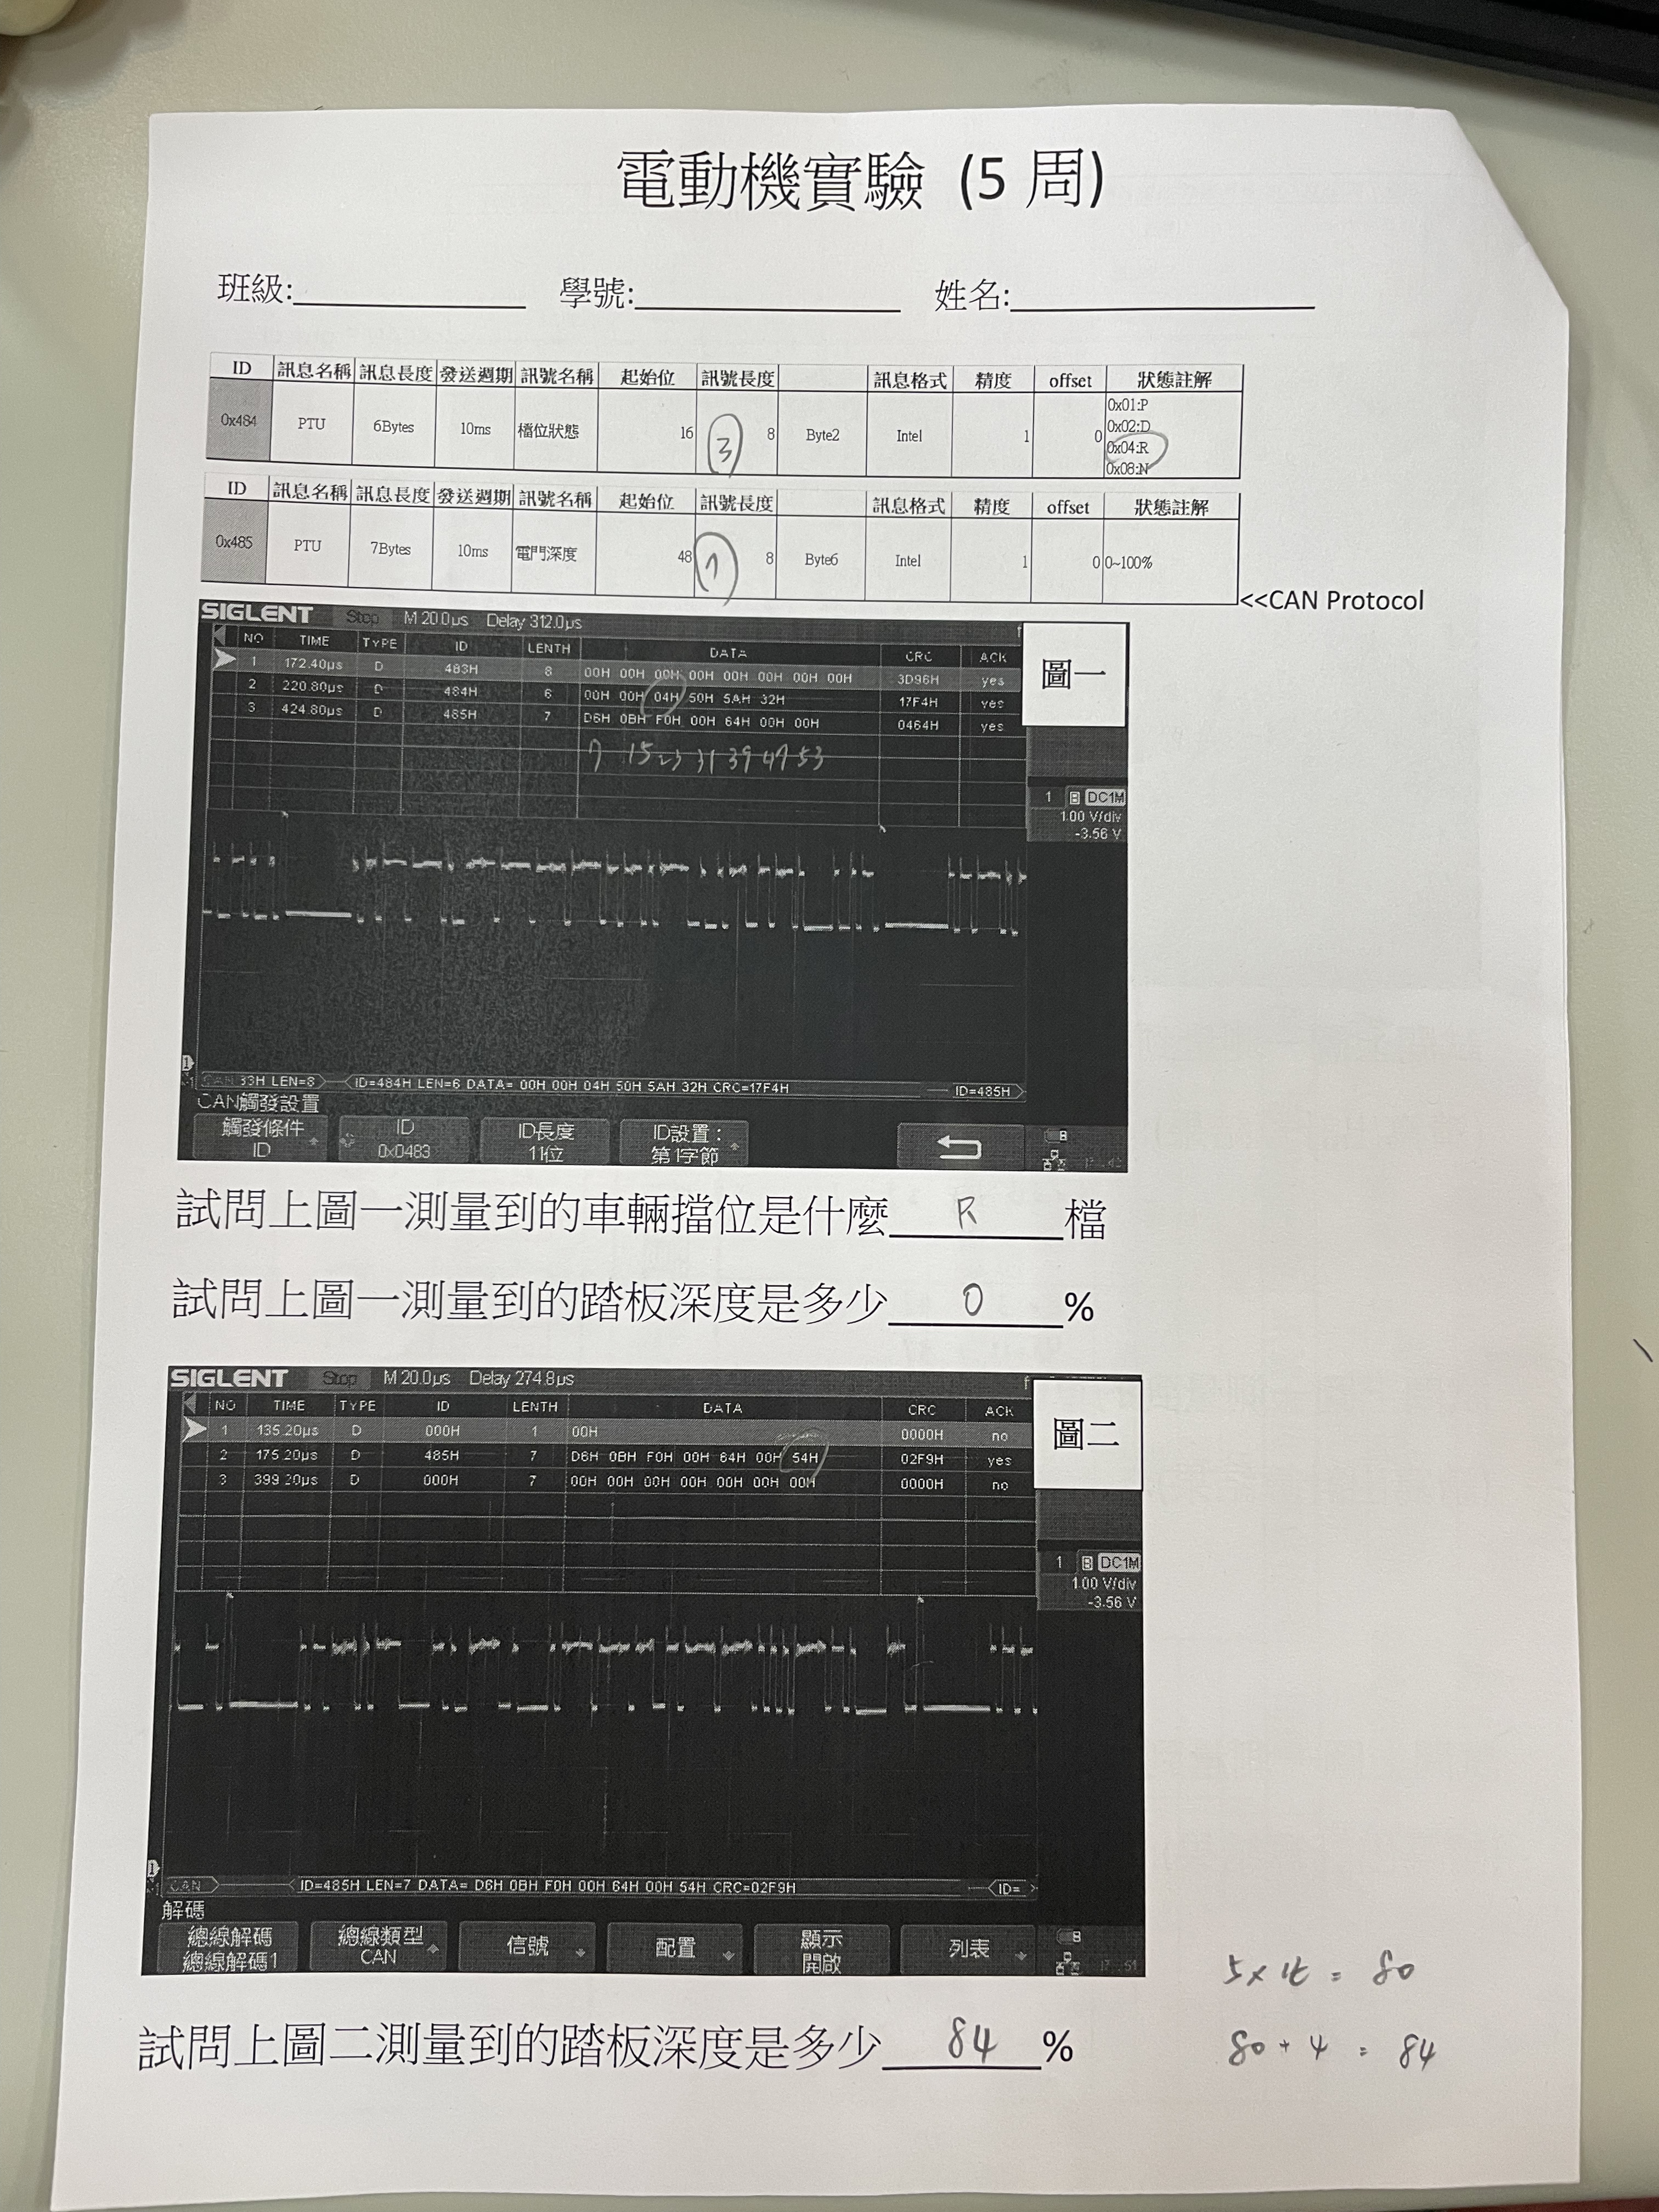 電動機實驗 (5 周)
班級: 學號: 姓名:
ID 訊息名稱 訊息長度 發送週期 訊號名稱 起始位 訊號長度 訊息格式 精度 offset 狀態註解
0x484 PTU 6Bytes 10ms 檔位狀態 16 3 8 Byte2 Intel 1 0 0x01:P
0x02:D
0x04:R
0x08:N
ID 訊息名稱 訊息長度 發送週期 訊號名稱 起始位 訊號長度 訊息格式 精度 offset 狀態註解
0x485 PTU 7Bytes 10ms 電門深度 48 7 8 Byte6 Intel 1 0 0~100%
<<CAN Protocol
SIGLENT Stop M 20.0µs Delay 312.0µs f
圖一
NO TIME TYPE ID LENTH DATA CRC ACK
1 172.40µs D 483H 8 00H 00H 00H 00H 00H 00H 00H 00H 3D96H yes
2 220.80µs D 484H 6 00H 00H 04H 50H 5AH 32H 17F4H yes
3 424.80µs D 485H 7 D6H 0BH F0H 00H 64H 00H 00H 0464H yes
7 15 23 31 39 47 53
1 B DC1M
1.00 V/div
-3.56 V
1
CAN 33H LEN=8 ID=484H LEN=6 DATA= 00H 00H 04H 50H 5AH 32H CRC=17F4H ID=485H
CAN觸發設置
觸發條件 ID ID長度 ID設置:
ID 0x0483 11位 第1字節
試問上圖一測量到的車輛擋位是什麼 R 檔
試問上圖一測量到的踏板深度是多少 0 %
SIGLENT Stop M 20.0µs Delay 274.8µs f
圖二
NO TIME TYPE ID LENTH DATA CRC ACK
1 135.20µs D 000H 1 00H 0000H no
2 175.20µs D 485H 7 D6H 0BH F0H 00H 64H 00H 54H 02F9H yes
3 399.20µs D 000H 7 00H 00H 00H 00H 00H 00H 00H 0000H no
1 B DC1M
1.00 V/div
-3.56 V
1
CAN ID=485H LEN=7 DATA= D6H 0BH F0H 00H 64H 00H 54H CRC=02F9H ID=
解碼
總線解碼 總線類型 信號 配置 顯示 列表
總線解碼1 CAN 開啟
17:51
5 x 16 = 80
80 + 4 = 84
試問上圖二測量到的踏板深度是多少 84 %